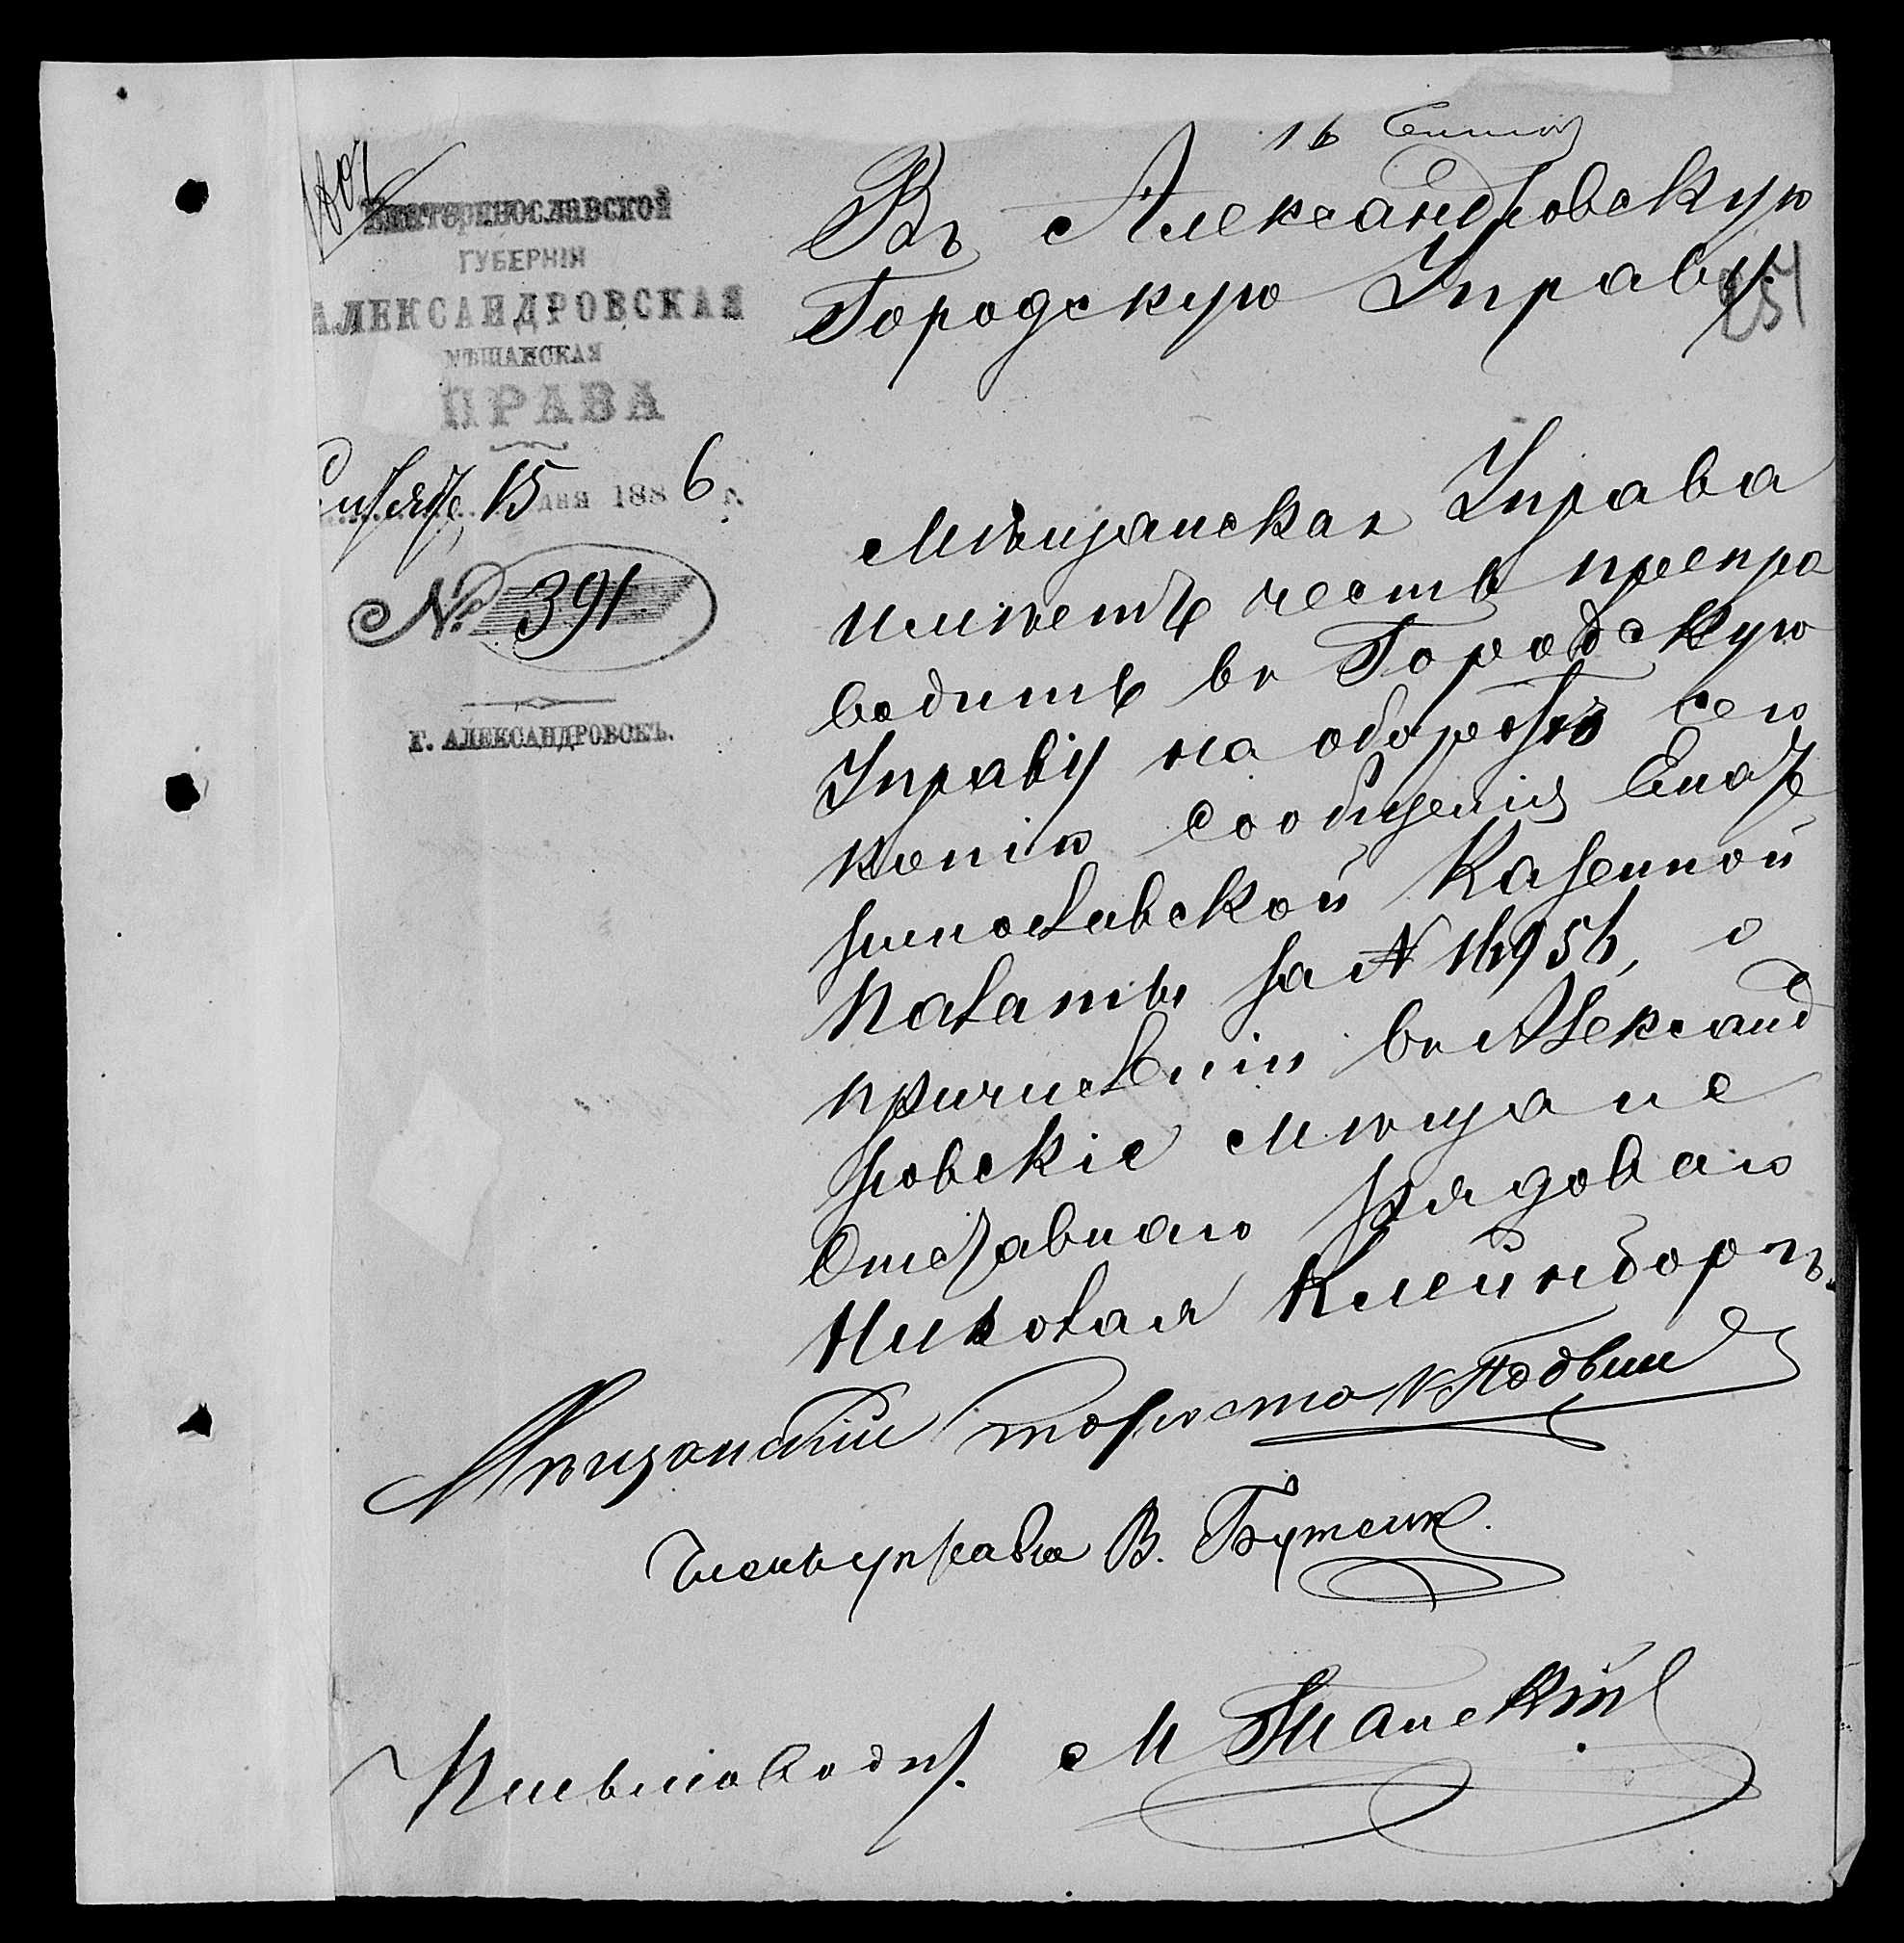 16 Сентяб
Екатеринославской
ГУБЕРНІИ
АЛЕКСАНДРОВСКАЯ
МѢЩАНСКАЯ
ПРАВА
Сентября 15 дня 1886 г.
№ 391
Г. АЛЕКСАНДРОВСКЪ.
Въ Александровскую
Городскую Управу.
251
Мѣщанская Управа
имѣетъ честь препро
водить въ Городскую
Управу на оборотѣ сего
копію сообщенія Екате
ринославской Казенной
Палаты за № 16956, о
причисленіи въ Александ
ровскіе мѣщане
Отставнаго рядоваго
Николая Клейнборгъ.
Мѣщанскій староста
Членъ управы В. Бутенк
Письмоводит. М